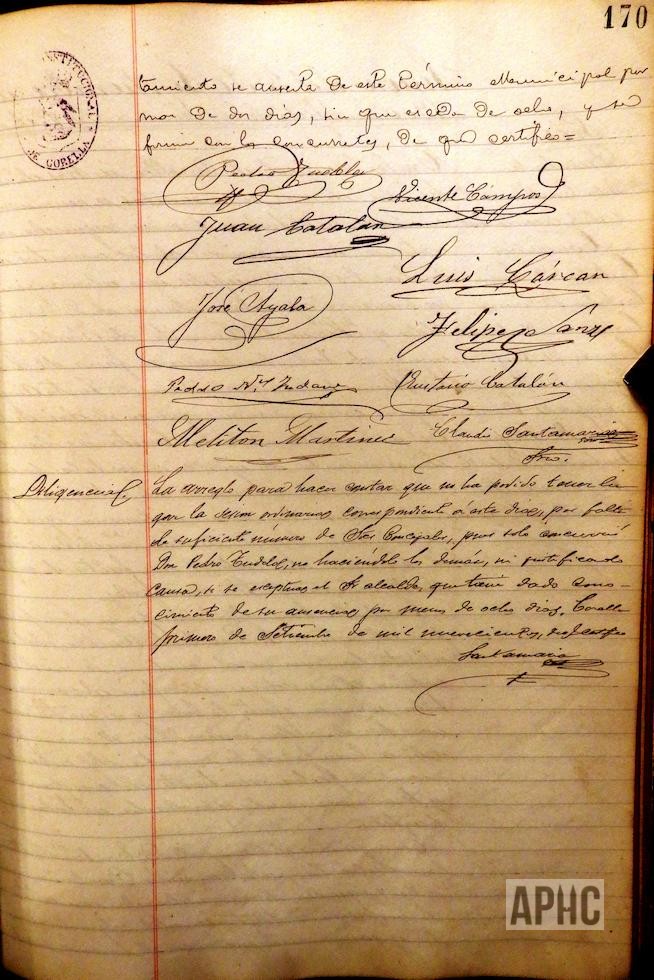 170
CONSTITUCIONAL
DE CORELLA
tamiento se ausenta de este término Municipal por
mas de dos dias, sin que esceda de ocho, y se
firma con los concurrentes, de que certifico =
Pedro
Vicente Campos
Juan Catalan
Luis Cárcar
José Ayala
Felipe Sanz
Pedro Nl.
Catalán
Meliton Martinez
Claudio Santamaria
Srio.
Diligencia
La arreglo para hacer contar que no ha podido tener lu-
gar la sesion ordinaria, correspondiente a este dia, por falta
de suficiente número de Sres Concejales, pues solo concurrió
Don Pedro no haciéndolo los demás, ni justificando
causa, si se esceptua el Sr alcalde, que tiene dado cono-
cimiento de su ausencia, por menos de ocho dias. Corella
primero de Setiembre de mil novecientos
Santamaria
APHC